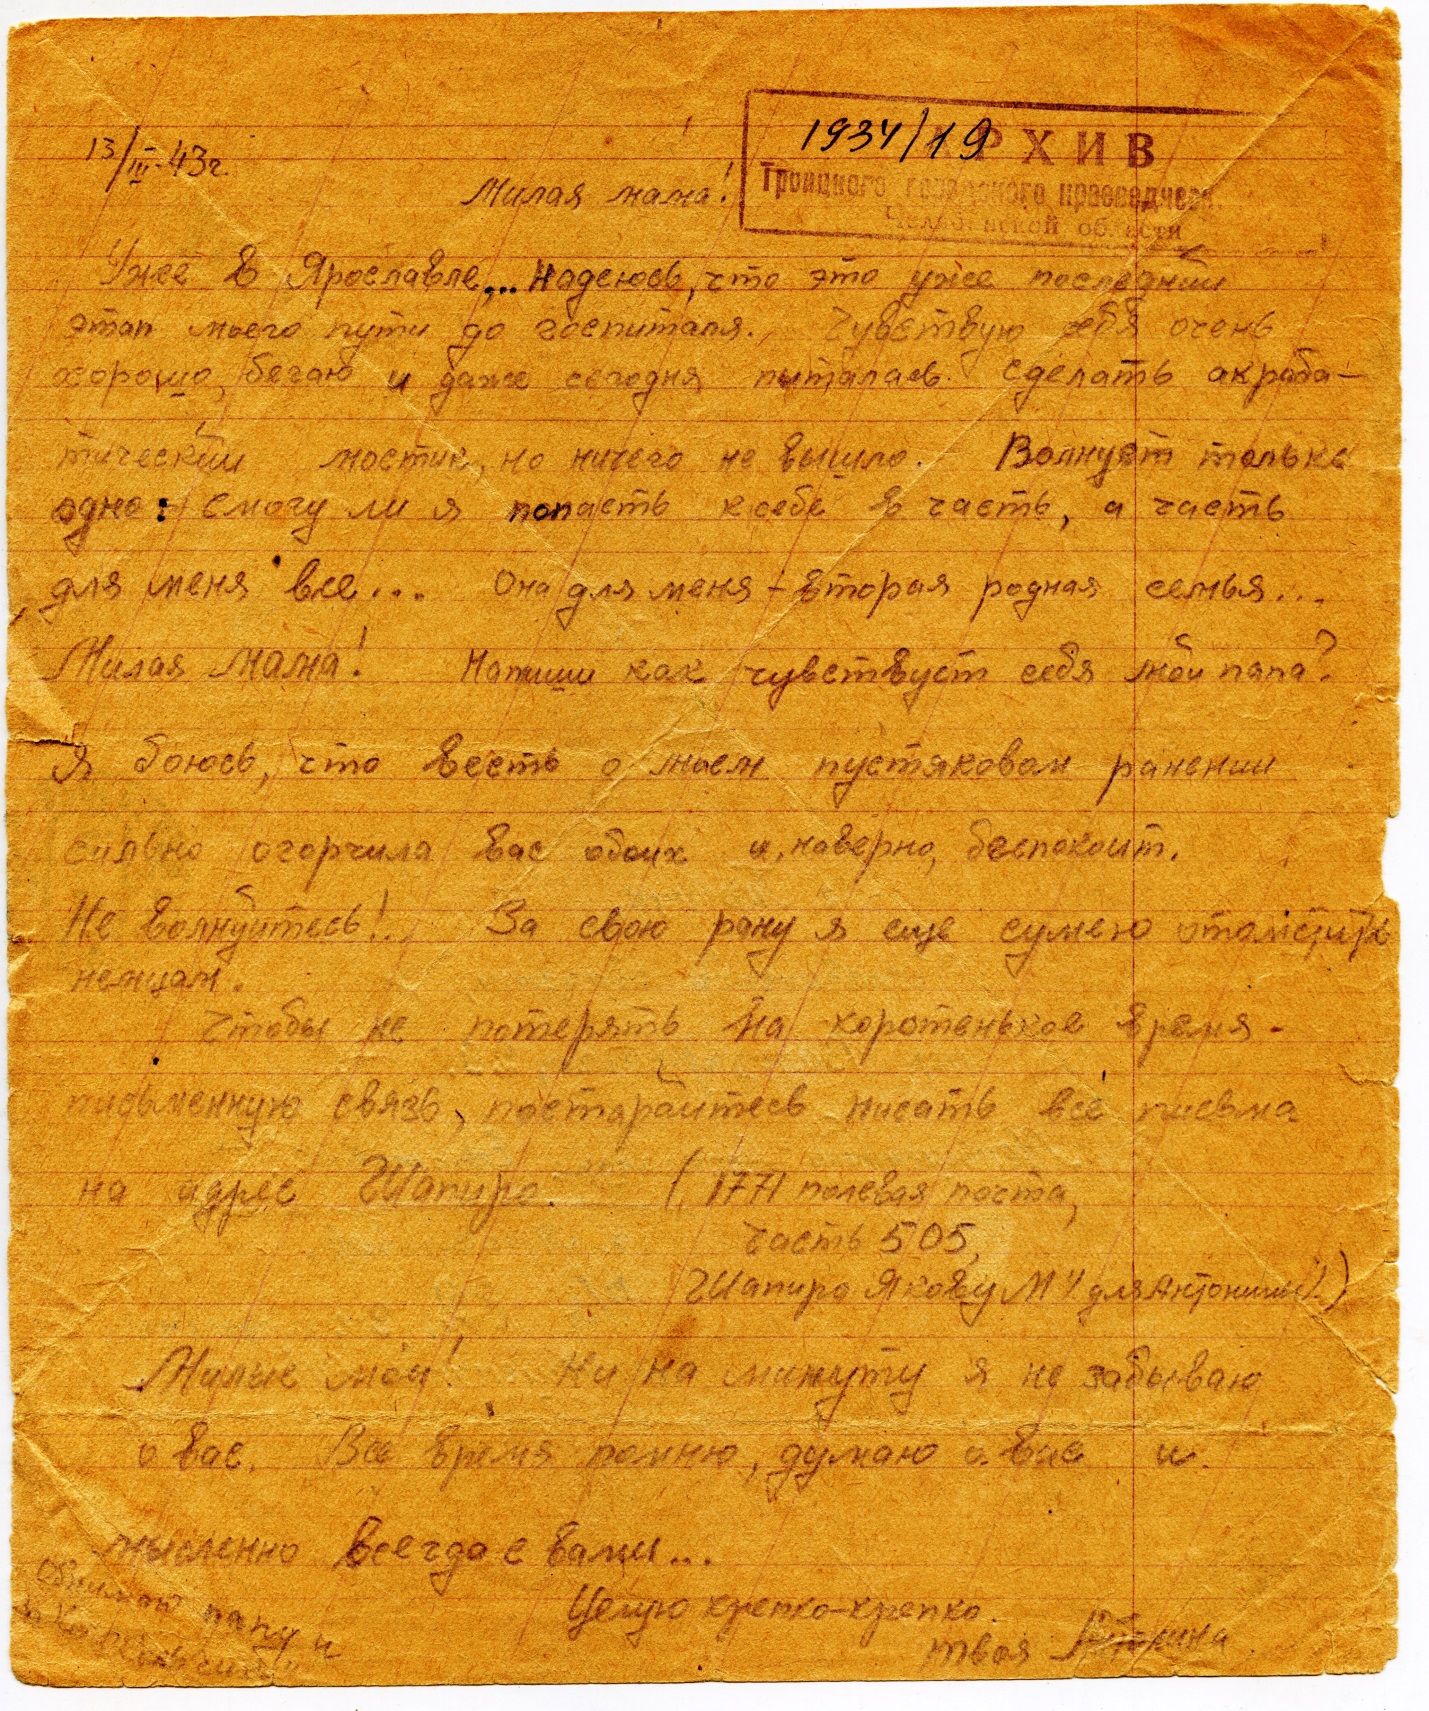 13/III-43г.
1934/19
АРХИВ
Троицкого городского краеведческ.
Челябинской области
Милая мама!
Уже в Ярославле... Надеюсь, что это уже последний
этап моего пути до госпиталя. Чувствую себя очень
хорошо, бегаю и даже сегодня пыталась сделать акроба-
тический мостик, но ничего не вышло. Волнует только
одно: смогу ли я попасть к себе в часть, а часть
для меня все... Она для меня - вторая родная семья...
Милая мама! Напиши как чувствует себя мой папа?
Я боюсь, что весть о моем пустяковом ранении
сильно огорчила вас обоих и, наверно, беспокоит.
Не волнуйтесь!.. За свою рану я еще сумею отомстить
немцам.
Чтобы не потерять на коротенькое время -
письменную связь, постарайтесь писать все письма
на адрес Шапиро. (1771 полевая почта,
часть 505,
Шапиро Якову М. для Антонины)
Милые мои! Ни на минуту я не забываю
о вас. Все время помню, думаю о вас и
мысленно всегда с вами...
Целую крепко-крепко.
твоя
Обнимаю папу и